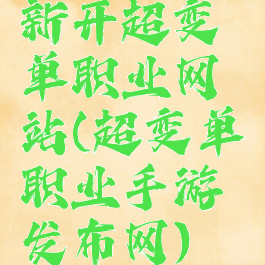 新开超变
单职业网
站(超变单
职业手游
发布网)